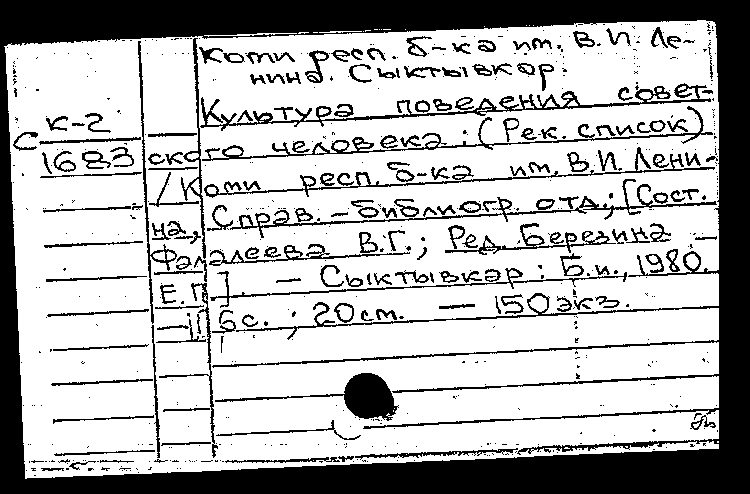 Коми респ. б-ка им. В.И. Ле-
нина. Сыктывкар.
Культура поведения совет-
С К-2
1683
ского человека : (Рек. список)
/ Коми респ. б-ка им. В.И. Лени-
на, Справ.-библиогр. отд.; [Сост.
Фалалеева В.Г.; Ред. Березина
Е.П.] — Сыктывкар : Б.и., 1980.
— 6с. ; 20см. — 150 экз.